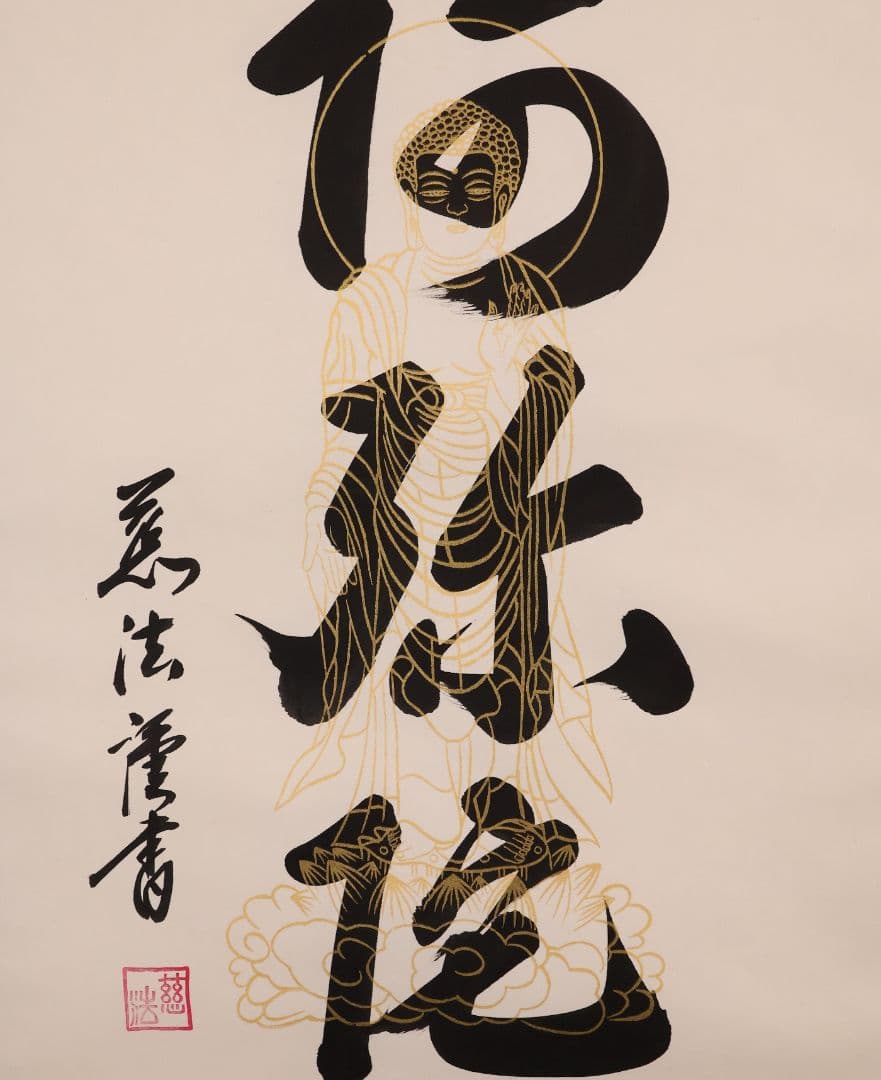 阿弥陀
慈法謹書
慈法